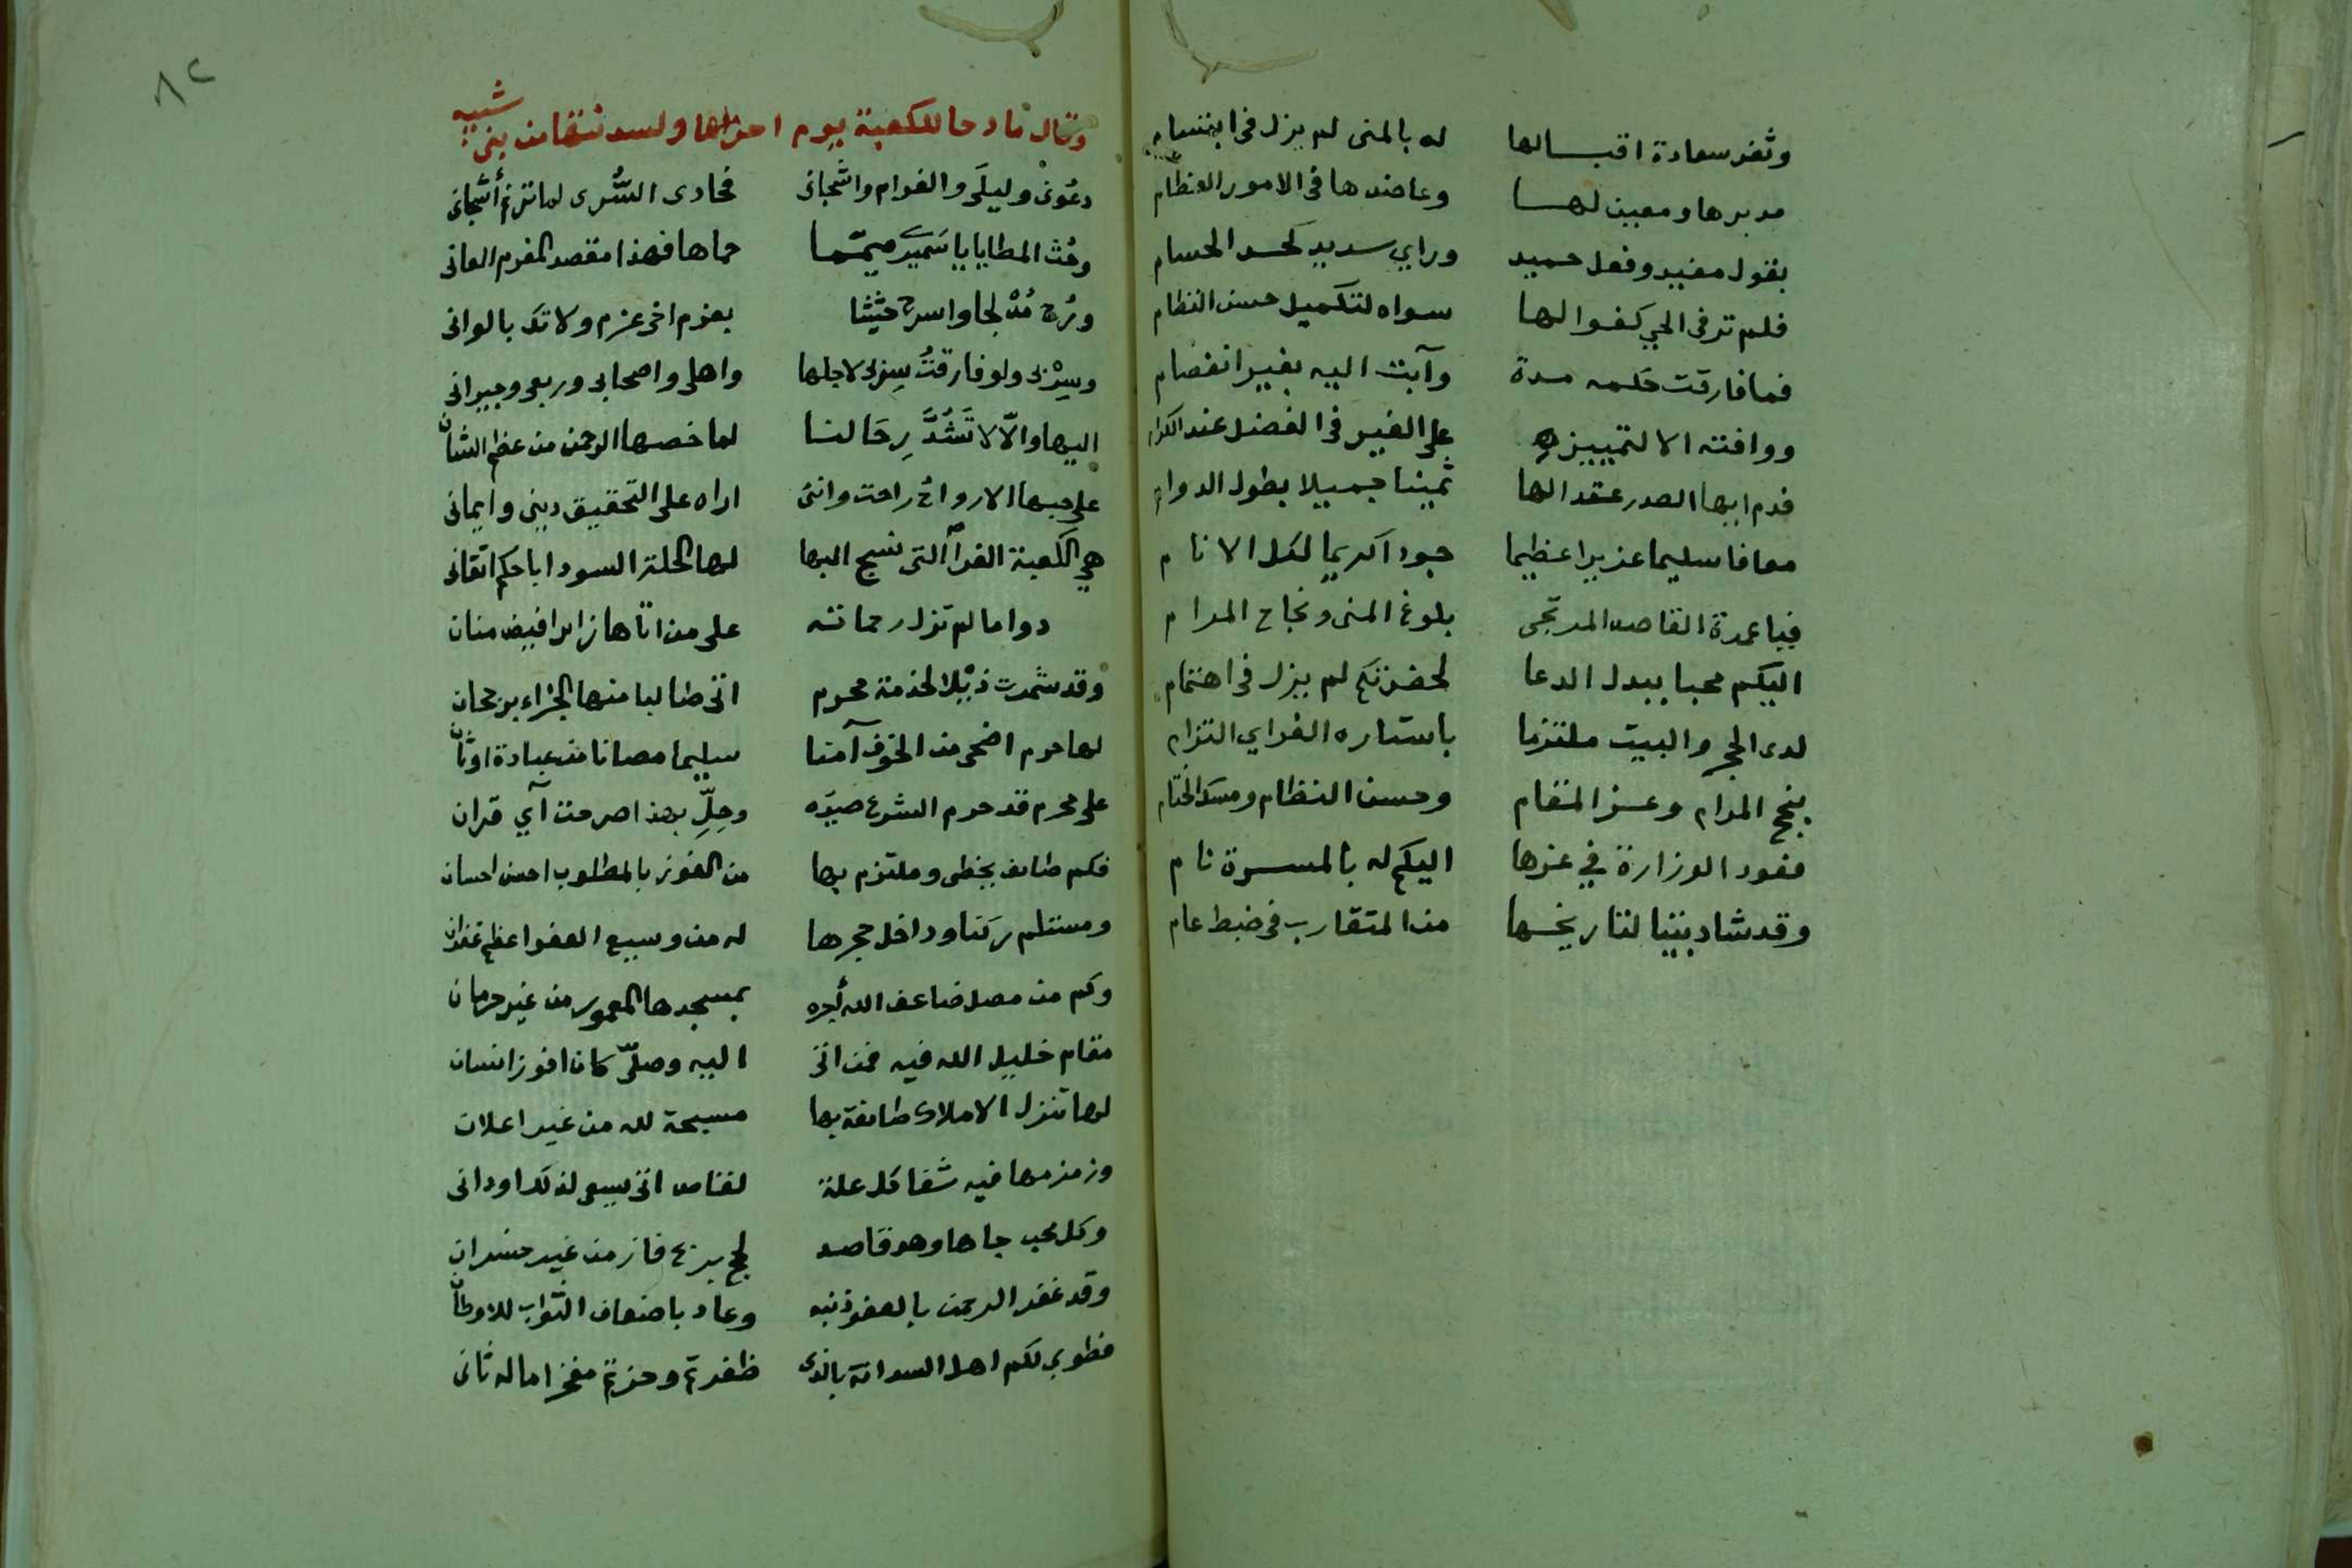 وثغر سعادة اقبالها له بالمنى لم يزل فى ابتسام
مدبرها ومعين لها وعاضدها فى الامور العظام
بقول مفيد وفعل حميد وراي سديد كحد الحسام
فلم تر فى الحي كفوا لها سواه لتكميل حسن النظام
فما فارقت حكمه مدة وآبت اليه بغير انفصام
ووافته الا لتمييزه على الغير فى الفضل عند الكرام
فدم ايها الصدر عقدا لها ثمينا جميلا بطول الدوام
معافا سليما عزيزا عظيما جودا كريما لكل الانام
فيا عمدة القاصد المرتجى بلوغ المنى ونجاح المرام
اليكم محبا يبدل الدعا لحضرتكم لم يزل فى اهتمام
لدى الحجر والبيت ملتزما باستاره الغر اي التزام
بنجح المرام وعز المقام وحسن النظام ومسك الختام
فعود الوزارة في عزها اليكم له بالمسرة نام
وقد شاد بيتا لتاريخها من المتقارب فى ضبط عام
٨٢
وقال مادحا للكعبة يوم احرامها ولسدنتها من بنى شيبه
دعونى وليلى والغرام واشجانى فحادى السُّرى لما ترنم أشجانى
وحُث المطايا يا سَمَيرى ميمّما حماها فهذا مقصد المغرم العانى
ورُح مُدْلجا واسرح حثيثا بعزم اخى عزم ولا تك بالوانى
وسِرْ بى ولو فارقتُ سِربى لاجلها واهلى واصحابى وربعى وجيرانى
اليها والّا لا تَشُدَّ رِحَالنا لما خصها الرحمن من عظم الشان
على حبها الارواح راحت واننى اراه على التحقيق دينى وايمانى
هي الكعبة الغرآ التى نسج البها لها الحلة السودا باحكم اتقانى
دواما لم تزل رحماته على من اتاها زائرا فيض منان
وقد شمرت ذيْلا لخدمة محرم اتى طالبا منها الجزاء برجحان
لها حرم اضحى من الخوف آمنا سليما مصانا من عبادة اوثان
على محرم قد حرم الشرع صيدَه وحِلِّ بهذا صرحت آي قران
فكم طائف يخطى وملتزم بها من الفوز بالمطلوب احسن احسان
ومستلم ركنا وداخل حجرها له من وسيع العفو اعظم غفران
وكم من مصل ضاعف الله أجره بمسجدها المعمور من غير حرمان
مقام خليل الله فيه فمن اتى اليه وصلّى كان افوز انسان
لها تنزل الاملاك طائفة بها مسبحة لله من غير اعلان
وزمزمها فيه شفا كل علة لقاص اتى يسعى لذلك او دانى
وكل محب جاها وهو قاصد لحج فاز من غير خسران
وقد غفر الرحمن بالعفو ذنبه وعاد باضعاف الثواب للاوطان
فطوبى لكم اهل السدانة بالذى ظفرتم وحزتم مفخرا ماله ثانى